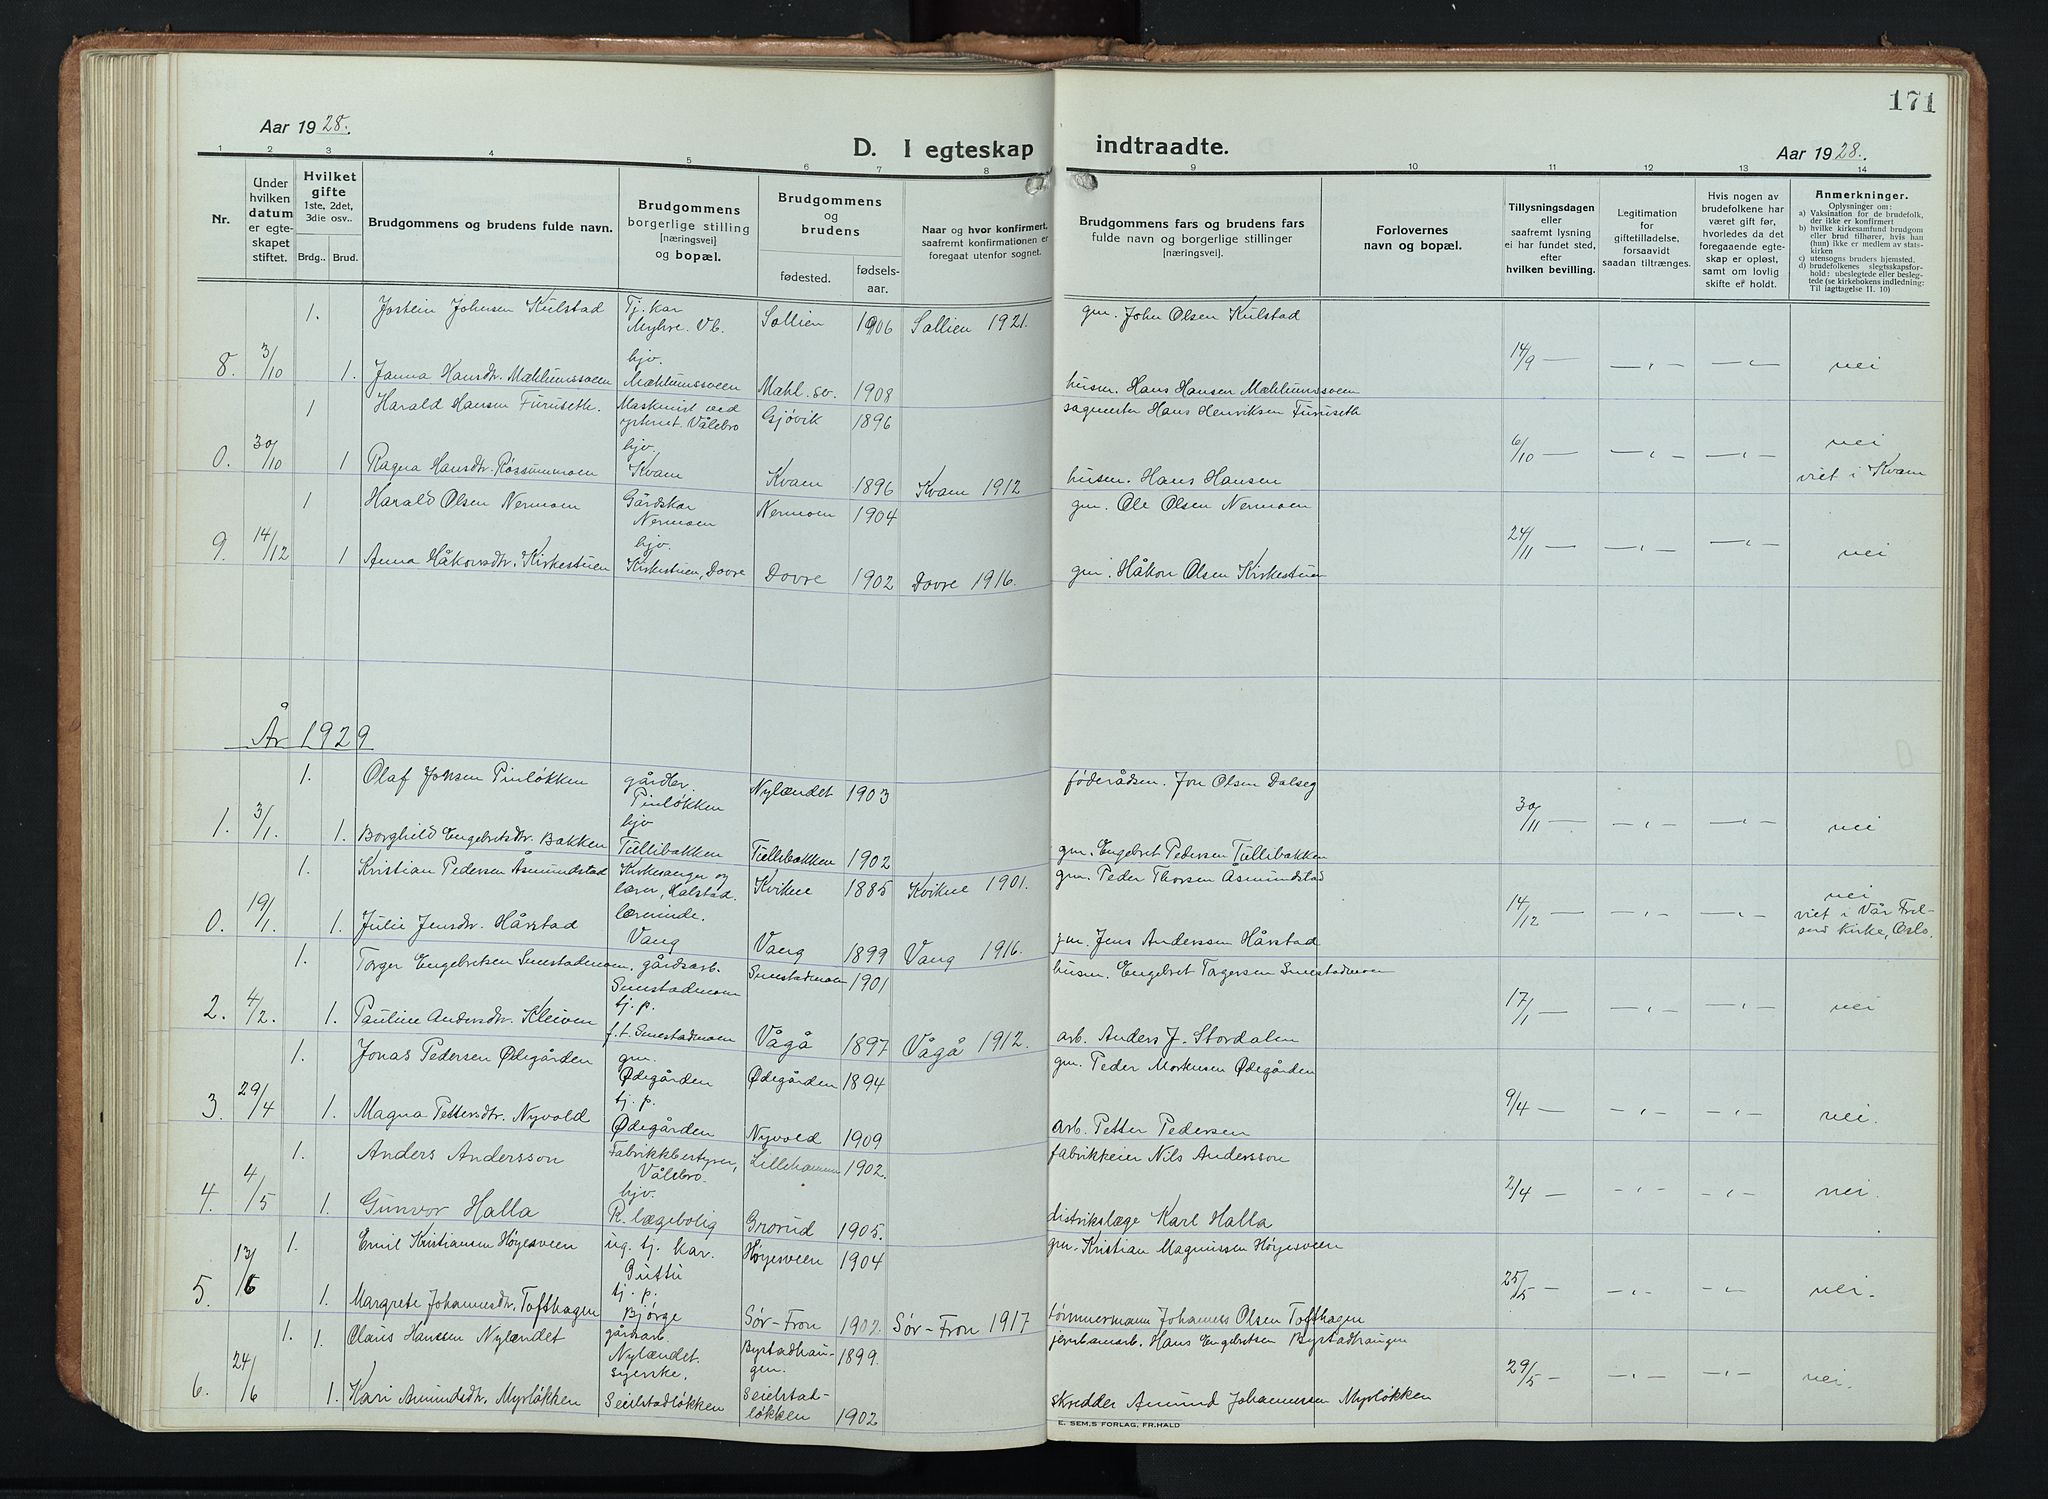 171
Aar 1928.
D. I egteskap indtraadte.
Aar 1928.
1 2 3 4 5 6 7 8 9 10 11 12 13 14
Nr.
Under hvilken datum er egte-skapet stiftet.
Hvilket gifte
1ste, 2det, 3die osv..
Brdg.. Brud.
Brudgommens og brudens fulde navn.
Brudgommens borgerlige stilling [næringsvei] og bopæl.
Brudgommens og brudens
fødested.
fødsels-aar.
Naar og hvor konfirmert, saafremt konfirmationen er foregaat utenfor sognet.
Brudgommens fars og brudens fars fulde navn og borgerlige stillinger [næringsvei].
Forlovernes navn og bopæl.
Tillysningsdagen eller saafremt lysning ei har fundet sted, efter hvilken bevilling.
Legitimation for giftetilladelse, forsaavidt saadan tiltrænges.
Hvis nogen av brudefolkene har været gift før, hvorledes da det foregaaende egte-skap er opløst, samt om lovlig skifte er holdt.
Anmerkninger.
Oplysninger om:
a) Vaksination for de brudefolk, der ikke er konfirmert
b) hvilke kirkesamfund brudgom eller brud tilhører, hvis han (hun) ikke er medlem av stats-kirken
c) utensogns bruders hjemsted.
d) brudefolkenes slegtsskapsfor-hold: ubeslegtede eller besleg-tede (se kirkebokens indledning: Til iagttagelse II. 10)
1. Jostein Johnsen Kulstad Tj. kar Myhre. Vb. Sollien 1906 Sollien 1921. gm. John Olsen Kulstad
8. 3/10 1. Janna Hansdtr. Mæhlumssveen hjv. Mæhlumssveen Mæhl.sv. 1908 husm. Hans Hansen Mæhlumssveen 14/9 — —"— —"— nei
1 Harald Hansen Furuseth. Maskinist ved ystnet. Vålebro Gjøvik 1896 sagmester Hans Henriksen Furuseth
0. 30/10 1 Ragna Hansdtr. Røssummoen hjv. Kvam Kvam 1896 Kvam 1912 husm. Hans Hansen 6/10 — —"— —"— nei viet i Kvam
1 Harald Olsen Nermoen Gårdskar Nermoen Nermoen 1904 gm. Ole Olsen Nermoen
9. 14/12 1 Anna Håkonsdtr. Kirkestuen hjv. Kirkestuen, Dovre Dovre 1902 Dovre 1916. gm. Håkon Olsen Kirkestuen 24/11 — —"— —"— nei
År 1929
1. Olaf Jonsen Pinløkken gårdbr. Pinløkken Nylændet 1903 føderådsm. Jon Olsen Dalseg
1. 3/1. 1. Borghild Engebretsdtr. Bakken hjv Tullibakken Tullibakken 1902 gm. Engebret Pedersen Tullibakken 30/11 — —"— —"— nei
1. Kristian Pedersen Åsmundstad Kirkesanger og lærer, Halstad. Kvikne 1885 Kvikne 1901. gm. Peder Thorsen Åsmundstad
0. 19/1. 1. Julie Jensdtr. Hårstad lærerinde. Vang Vang 1899 Vang 1916. gm. Jens Anderssen Hårstad 14/12 — —"— —"— nei viet i Vår Frel-sers Kirke, Oslo.
1. Torger Engebretsen Smestadmoen. gårdsarb. Smestadmoen Smestadmoen 1901 husm. Engebret Torgersen Smestadmoen
2. 4/2. 1. Pauline Andersdtr. Kleiven tj. p. f. t. Smestadmoen Vågå 1897 Vågå 1912. arb. Anders J. Stordalen 17/1 — —"— —"— nei
1. Jonas Pedersen Ødegården gm. Ødegården Ødegården 1894 gm. Peder Mortensen Ødegården
3. 29/4 1. Magna Pettersdtr. Nyvold tj. p. Ødegården Nyvold 1909 arb. Petter Pedersen 9/4 — —"— —"— nei.
1. Anders Andersson Fabrikkbestyrer, Vålebro. Lillehammer 1902. fabrikkeier Nils Andersson
4. 4/5 1. Gunvor Halla hjv. R. lægebolig Grorud 1905. distrikslæge Karl Halla 2/4 — —"— —"— nei.
1. Emil Kristiansen Høyesveen ug. tj. kar. Guttu Høyesveen 1904 gm. Kristian Magnussen Høyesveen
5. 13/6 1. Margrete Johannesdtr. Tofthagen tj. p. Bjørge Sør-Fron 1902. Sør-Fron 1917 tømmermann Johannes Olsen Tofthagen 25/5 — —"— —"— nei.
1. Olaus Hanssen Nylændet gårdsarb. Nylændet. Byrstadhau-gen. 1899. jernbanearb. Hans Engebretsen Byrstadhaugen
6. 24/6 1. Kari Amundsdtr. Myrløkken syerske. Seielstadløkken Seielstad-løkken 1902 skredder Amund Johannessen Myrløkken 29/5 — —"— —"— nei.
E. SEM.S FORLAG, FR.HALD